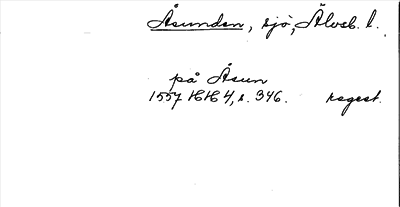 Åsunden, sjö, Älvsb. l.
på Åsun
1557 HH 4, s. 346. regest.